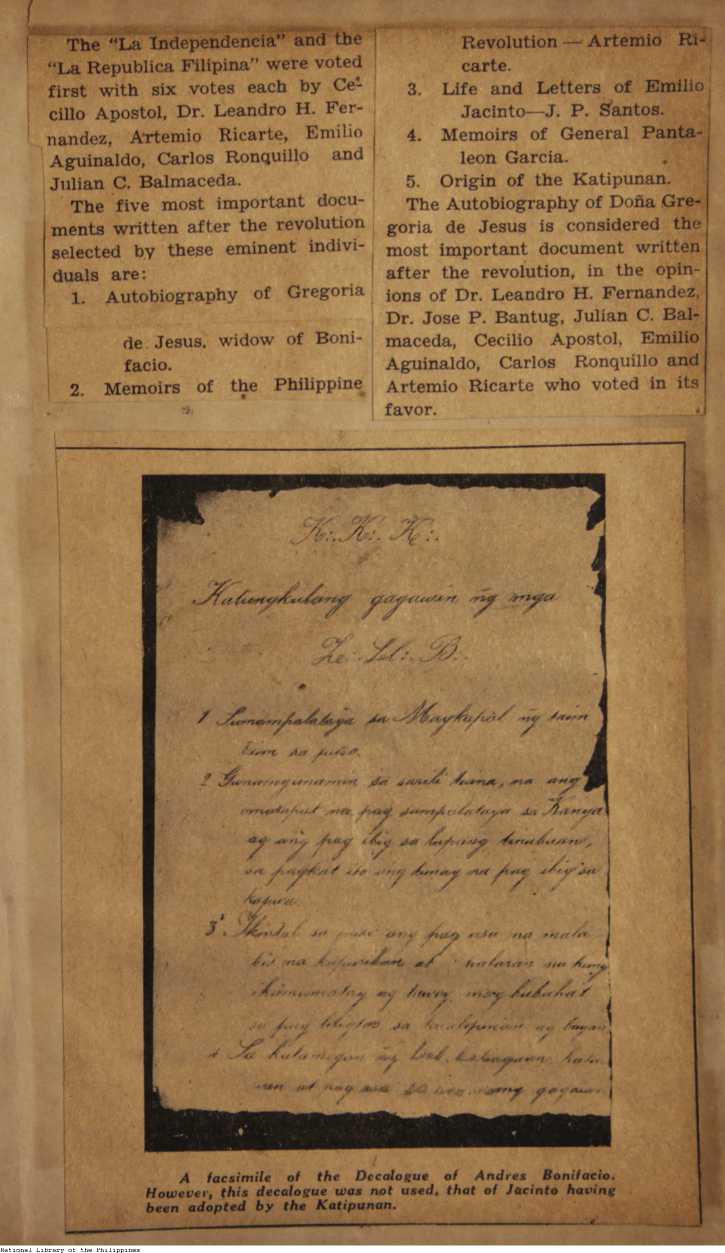 The "La Independencia" and the
"La Republica Filipina" were voted
first with six votes each by Ce-
cillo Apostol, Dr. Leandro H. Fer-
nandez, Artemio Ricarte, Emilio
Aguinaldo, Carlos Ronquillo and
Julian C. Balmaceda.
The five most important docu-
ments written after the revolution
selected by these eminent indivi-
duals are:
1. Autobiography of Gregoria
de Jesus, widow of Boni-
facio.
2. Memoirs of the Philippine
Revolution — Artemio Ri-
carte.
3. Life and Letters of Emilio
Jacinto—J. P. Santos.
4. Memoirs of General Panta-
leon Garcia.
5. Origin of the Katipunan.
The Autobiography of Doña Gre-
goria de Jesus is considered the
most important document written
after the revolution, in the opin-
ions of Dr. Leandro H. Fernandez,
Dr. Jose P. Bantug, Julian C. Bal-
maceda, Cecilio Apostol, Emilio
Aguinaldo, Carlos Ronquillo and
Artemio Ricarte who voted in its
favor.
K:. K:. K:.
Katungkulang gagawin ng mga
Ze:. Ll:. B:.
1 Sumampalataya sa Maykapal ng taim
tim sa puso.
2 Gunamgunamin sa sarili tuina, na ang
matapat na pag sampalataya sa Kanya
ay ang pag ibig sa lupang tinubuan,
sa pagkat ito ang tunay na pag ibig sa
kapwa.
3 Ikintal sa puso ang pag asa na mala
bis na kapurihan at kung
ikamamatay ng tawo'y mag bubuhat
sa pag tatangol sa ng bayan
4 Sa kalamigan ng loob,
at pag asa sa gagawin
A facsimile of the Decalogue of Andres Bonifacio.
However, this decalogue was not used, that of Jacinto having
been adopted by the Katipunan.
National Library of the Philippines